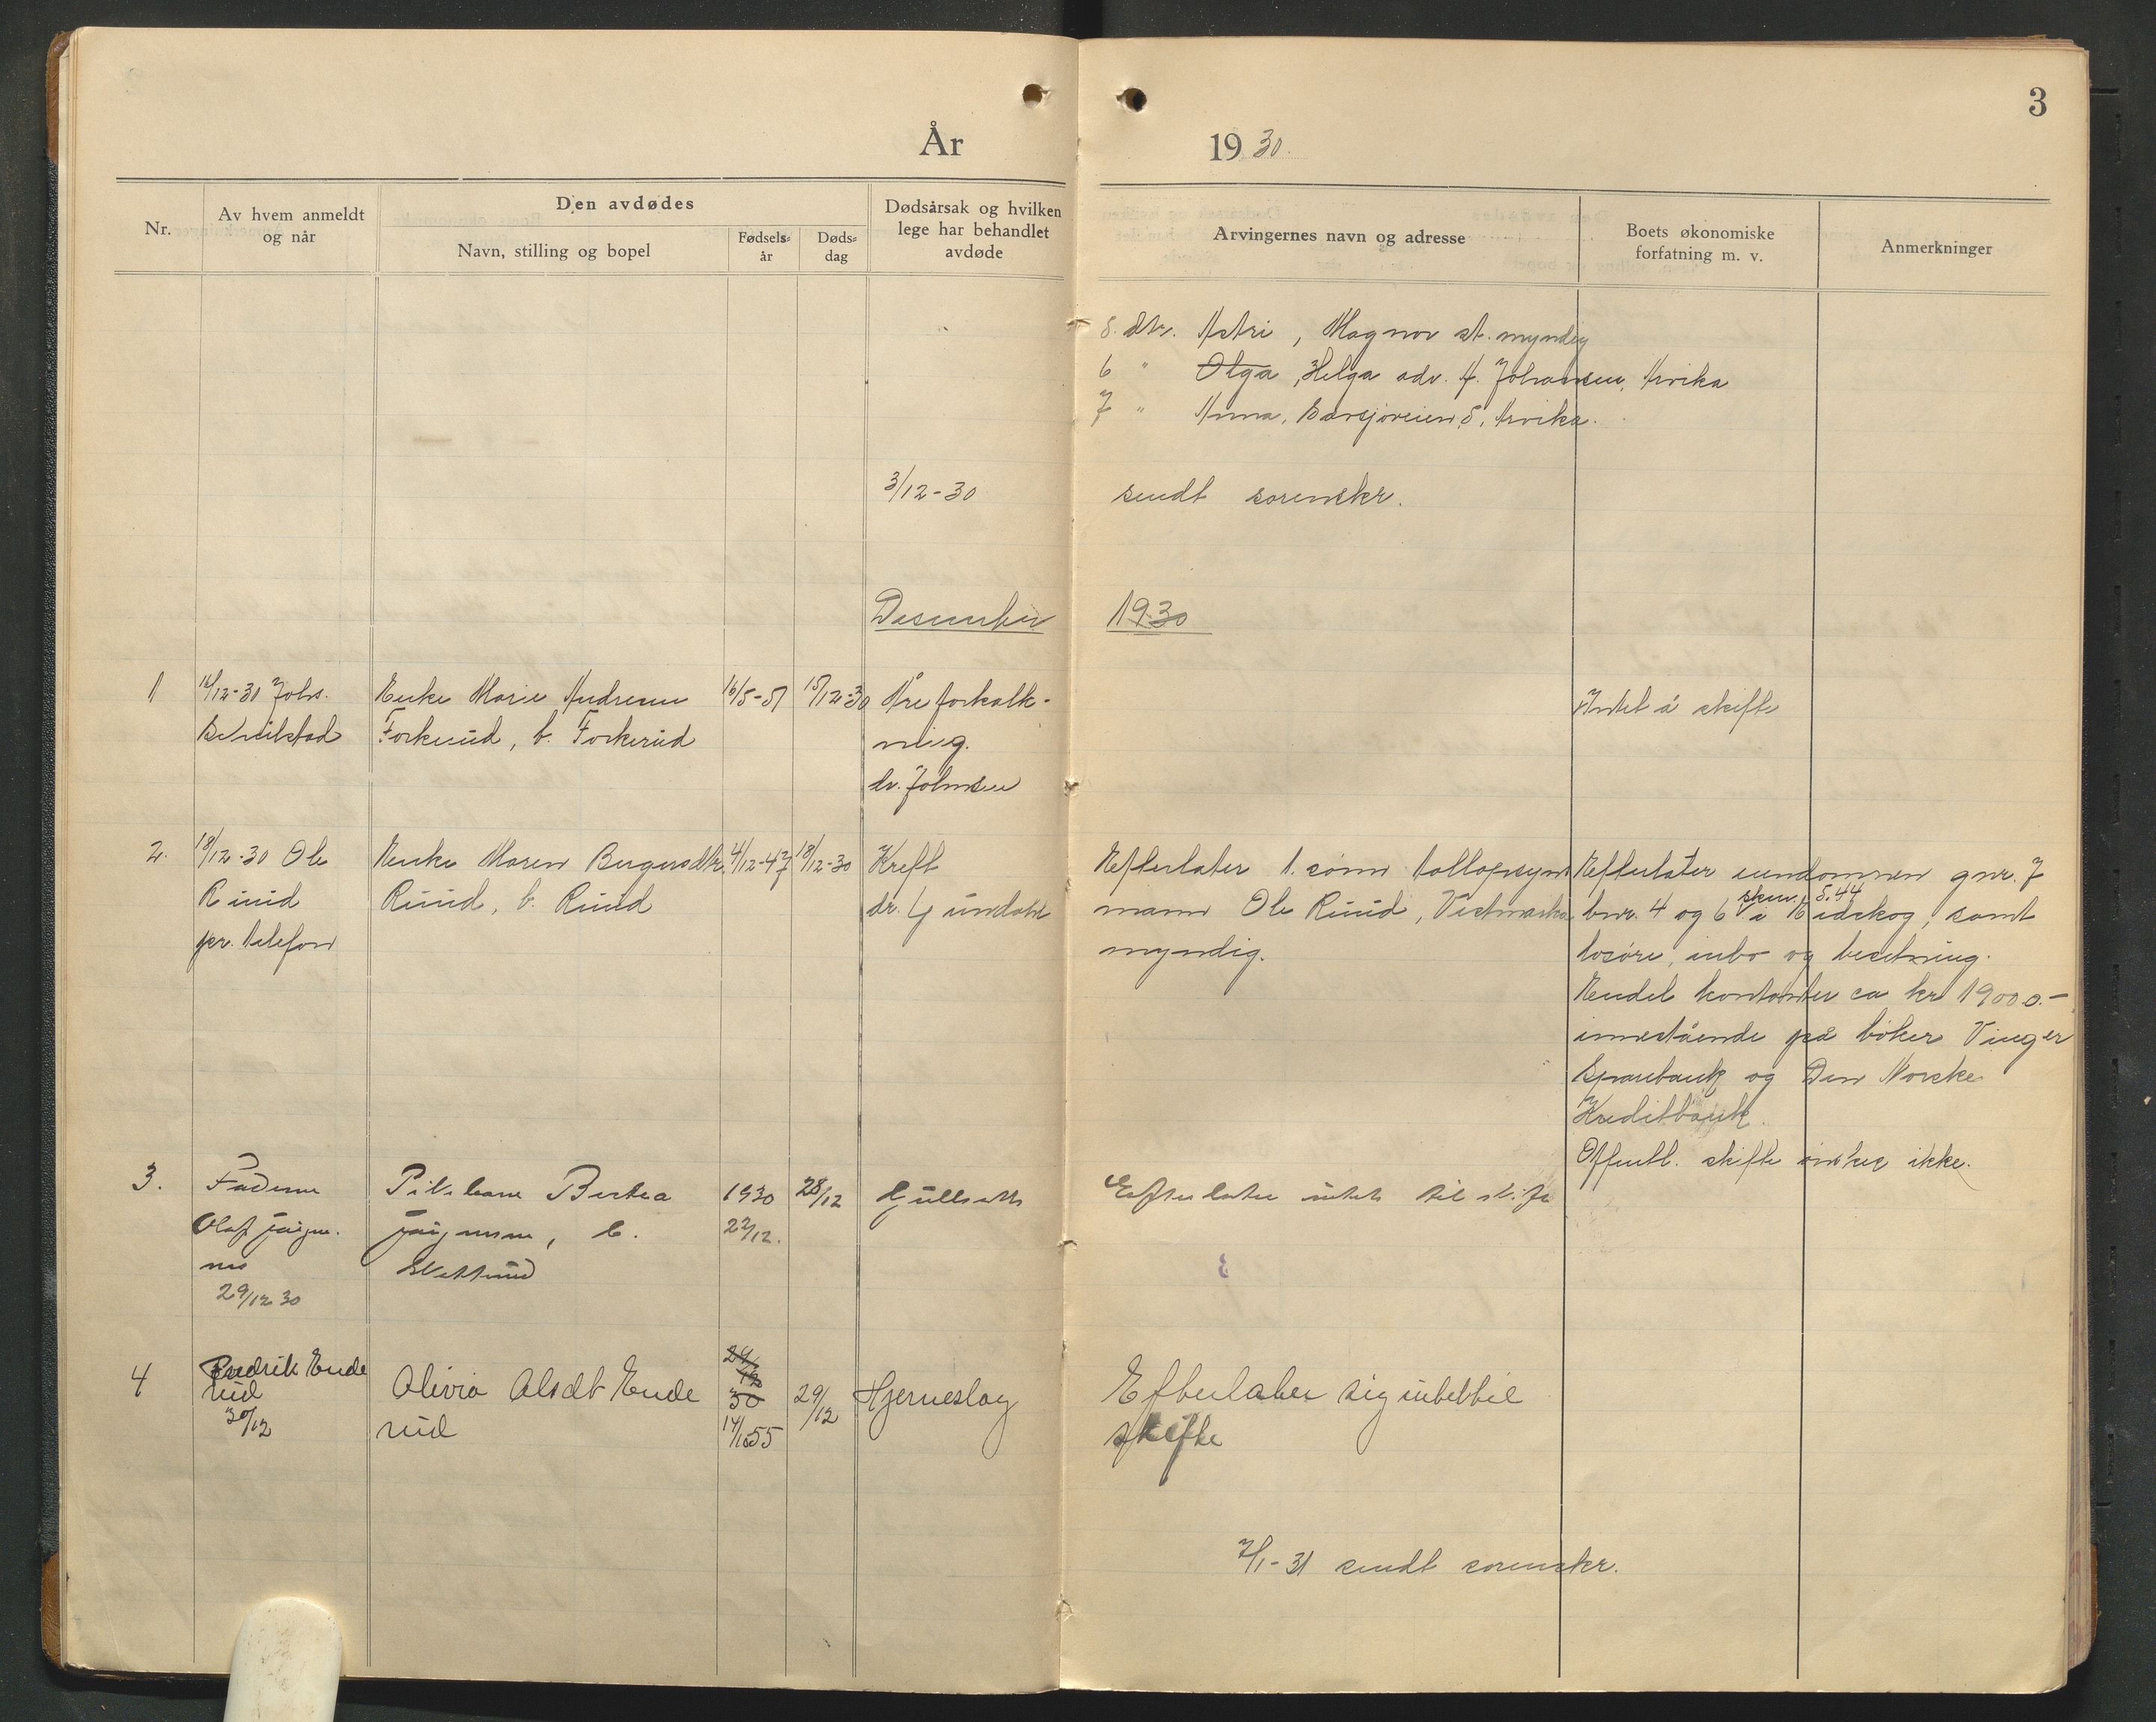 3
År 1930.
Nr.
Av hvem anmeldt
og når
Den avdødes
Navn, stilling og bopel
Fødsels-
år
Døds-
dag
Dødsårsak og hvilken
lege har behandlet
avdøde
Arvingernes navn og adresse
Boets økonomiske
forfatning m. v.
Anmerkninger
5. dtr. Astri, Magnor st. myndig
6 " Olga, Helga adv. A. Johansen, Arvika
7 " Anna, 5, Arvika.
3/12-30 sendt sorenskr.
Desember 1930
1
16/12-30 Johs.
Enke Marie Andresen
Forkerud, b. Forkerud
16/5-51
15/12-30
Åreforkalk-
ning.
dr. Johnsen
Intet å skifte
2.
18/12-30 Ole
Ruud
pr. telefon
Enke Maren Bergersdtr.
Ruud, b. Ruud
4/12-47
18/12-30
Kreft
dr. Grundahl
Efterlater 1. sønn tollopsyns
mann Ole Ruud, Vestmarka
myndig.
Efterlater eiendommen gnr. 7
bnr. 4 og 6 i Eidskog, samt
skm. 5.44
losøre, inbo og besetning.
Endel kontanter ca kr 19000.-
innestående på bøker Vinger
Sparebank og Den Norske
Kreditbank.
Offentl. skifte ønskes ikke.
3.
Faderen
Olaf
29/12 30
Pikebarn Bertea
b.
1930
22/12.
28/12
Gullsott
Efterlater intet til skifte
4
Fredrik Ende
rud
30/12
Olivia Olsdt Ende
rud
24/
12
30
14/10 55
29/12
Hjerneslag
Efterlater sig intet til
skifte
7/1-31 sendt sorenskr.